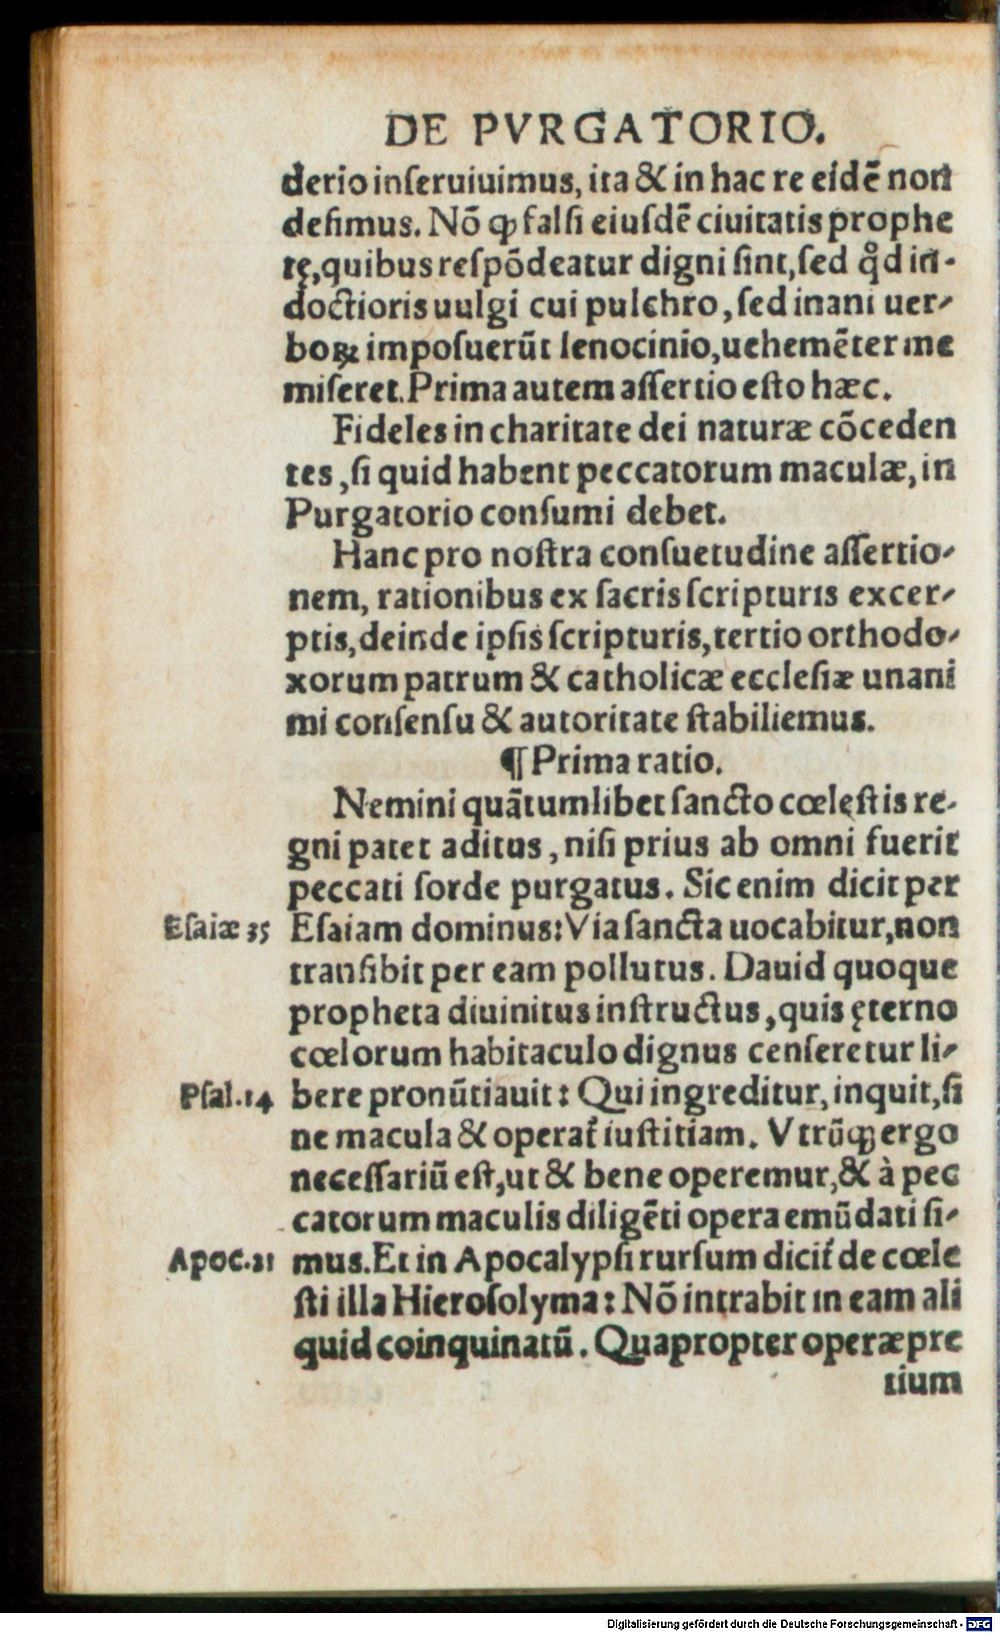 DE PVRGATORIO.
derio inſeruiuimus, ita & in hac re eidē non
deſimus. Nō ꝙ falſi eiuſdē ciuitatis prophe
tę, quibus reſpōdeatur digni ſint, ſed qd̊ in-
doctioris uulgi cui pulchro, ſed inani uer-
boꝝ impoſuerūt lenocinio, uehemēter me
miſeret. Prima autem aſſertio eſto hæc.
Fideles in charitate dei naturæ cōceden
tes, ſi quid habent peccatorum maculæ, in
Purgatorio conſumi debet.
Hanc pro noſtra conſuetudine aſſertio-
nem, rationibus ex ſacris ſcripturis excer-
ptis, deinde ipſis ſcripturis, tertio orthodo-
xorum patrum & catholicæ eccleſiæ unani
mi conſenſu & autoritate ſtabiliemus.
¶ Prima ratio.
Nemini quātumlibet ſancto cœlęſtis re-
gni patet aditus, niſi prius ab omni fuerit
peccati ſorde purgatus. Sic enim dicit per
Eſaiæ 35
Eſaiam dominus: Via ſancta uocabitur, non
tranſibit per eam pollutus. Dauid quoque
propheta diuinitus inſtructus, quis ęterno
cœlorum habitaculo dignus cenſeretur li-
Pſal. 14
bere pronūtiauit: Qui ingreditur, inquit, ſi
ne macula & operat̃ iuſtitiam. Vtrūꝙ ergo
neceſſariū eſt, ut & bene operemur, & à pec
catorum maculis diligēti opera emūdati ſi-
Apoc. 21
mus. Et in Apocalypſi rurſum dicit̃ de cœle
ſti illa Hieroſolyma: Nō intrabit in eam ali
quid coinquinatū. Quapropter operæpre
tium
Digitalisierung gefördert durch die Deutsche Forschungsgemeinschaft - DFG